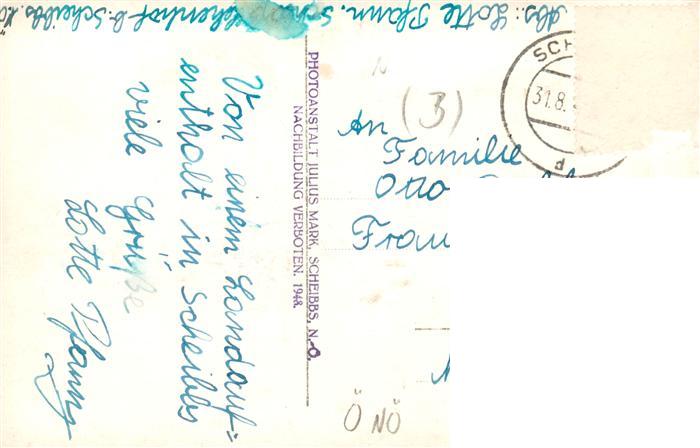 Abs.: Lotte Pfann, Scheibbs
Von einem Landauf=
enthalt in Scheibbs
viele Grüße
Lotte Pfann
PHOTOANSTALT JULIUS MARK, SCHEIBBS, N.-Ö.
NACHBILDUNG VERBOTEN. 1948.
SCH
31.8.
P
(3)
An
Familie
Otto
Frau
Ö NÖ